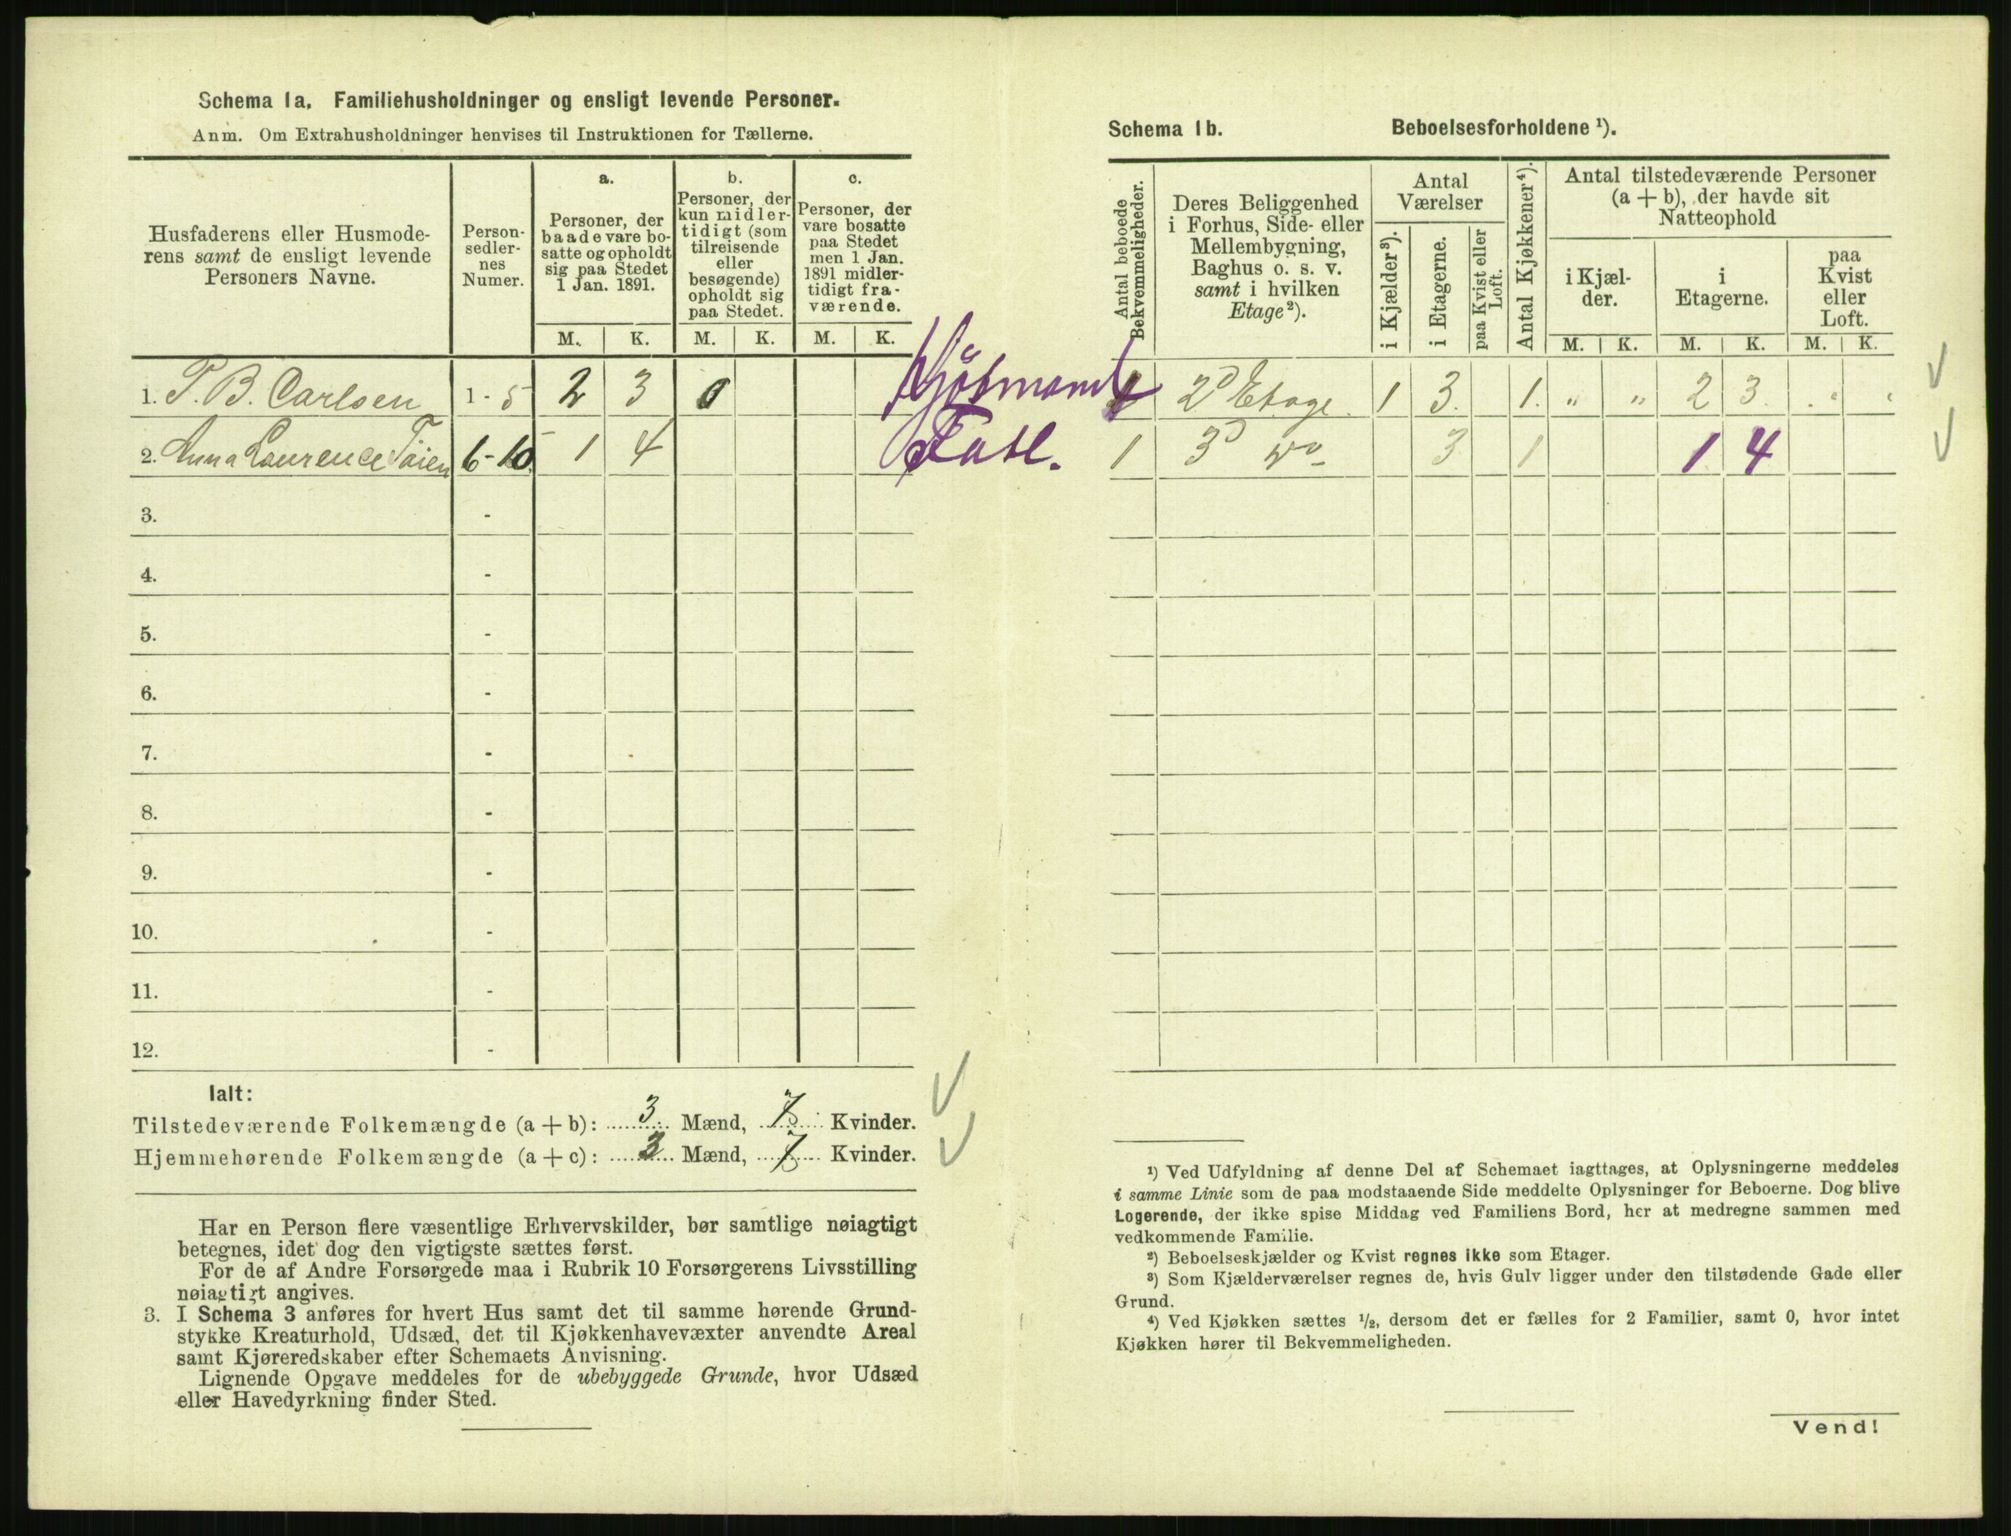 Schema 1a. Familiehusholdninger og ensligt levende Personer.
Anm. Om Extrahusholdninger henvises til Instruktionen for Tællerne.
Husfaderens eller Husmode-
rens samt de ensligt levende
Personers Navne.
Person-
sedler-
nes
Numer.
a.
Personer, der
baade vare bo-
satte og opholdt
sig paa Stedet
1 Jan. 1891.
b.
Personer, der
kun midler-
tidigt (som
tilreisende
eller
besøgende)
opholdt sig
paa Stedet.
c.
Personer, der
vare bosatte
paa Stedet
men 1 Jan.
1891 midler-
tidigt fra-
værende.
M. K. M. K. M. K.
1. T. B. Carlsen 1 - 5 2 3 0 Kjøbmand
2. Anna Laurence Töien 6 - 10 1 4
3. -
4. -
5. -
6. -
7. -
8. -
9. -
10. -
11. -
12. -
Ialt:
Tilstedeværende Folkemængde (a + b): 3 Mænd, 7 Kvinder.
Hjemmehørende Folkemængde (a + c): 3 Mænd, 7 Kvinder.
Har en Person flere væsentlige Erhvervskilder, bør samtlige nøiagtigt
betegnes, idet dog den vigtigste sættes først.
For de af Andre Forsørgede maa i Rubrik 10 Forsørgerens Livsstilling
nøiagtigt angives.
3. I Schema 3 anføres for hvert Hus samt det til samme hørende Grund-
stykke Kreaturhold, Udsæd, det til Kjøkkenhavevæxter anvendte Areal
samt Kjøreredskaber efter Schemaets Anvisning.
Lignende Opgave meddeles for de ubebyggede Grunde, hvor Udsæd
eller Havedyrkning finder Sted.
Schema 1b. Beboelsesforholdene ¹).
Antal beboede
Bekvemmeligheder.
Deres Beliggenhed
i Forhus, Side- eller
Mellembygning,
Baghus o. s. v.
samt i hvilken
Etage²).
Antal
Værelser
i Kjælder³).
i Etagerne.
paa Kvist eller
Loft.
Antal Kjøkkener⁴).
Antal tilstedeværende Personer
(a + b), der havde sit
Natteophold
i Kjæl-
der.
i
Etagerne.
paa
Kvist
eller
Loft.
M. K. M. K. M. K.
1 2d Etage. 1 3. 1. „ „ 2 3.
1 3d do 3 1 1 4
¹) Ved Udfyldning af denne Del af Schemaet iagttages, at Oplysningerne meddeles
i samme Linie som de paa modstaaende Side meddelte Oplysninger for Beboerne. Dog blive
Logerende, der ikke spise Middag ved Familiens Bord, her at medregne sammen med
vedkommende Familie.
²) Beboelseskjælder og Kvist regnes ikke som Etager.
³) Som Kjælderværelser regnes de, hvis Gulv ligger under den tilstødende Gade eller
Grund.
⁴) Ved Kjøkken sættes ½, dersom det er fælles for 2 Familier, samt 0, hvor intet
Kjøkken hører til Bekvemmeligheden.
Vend!